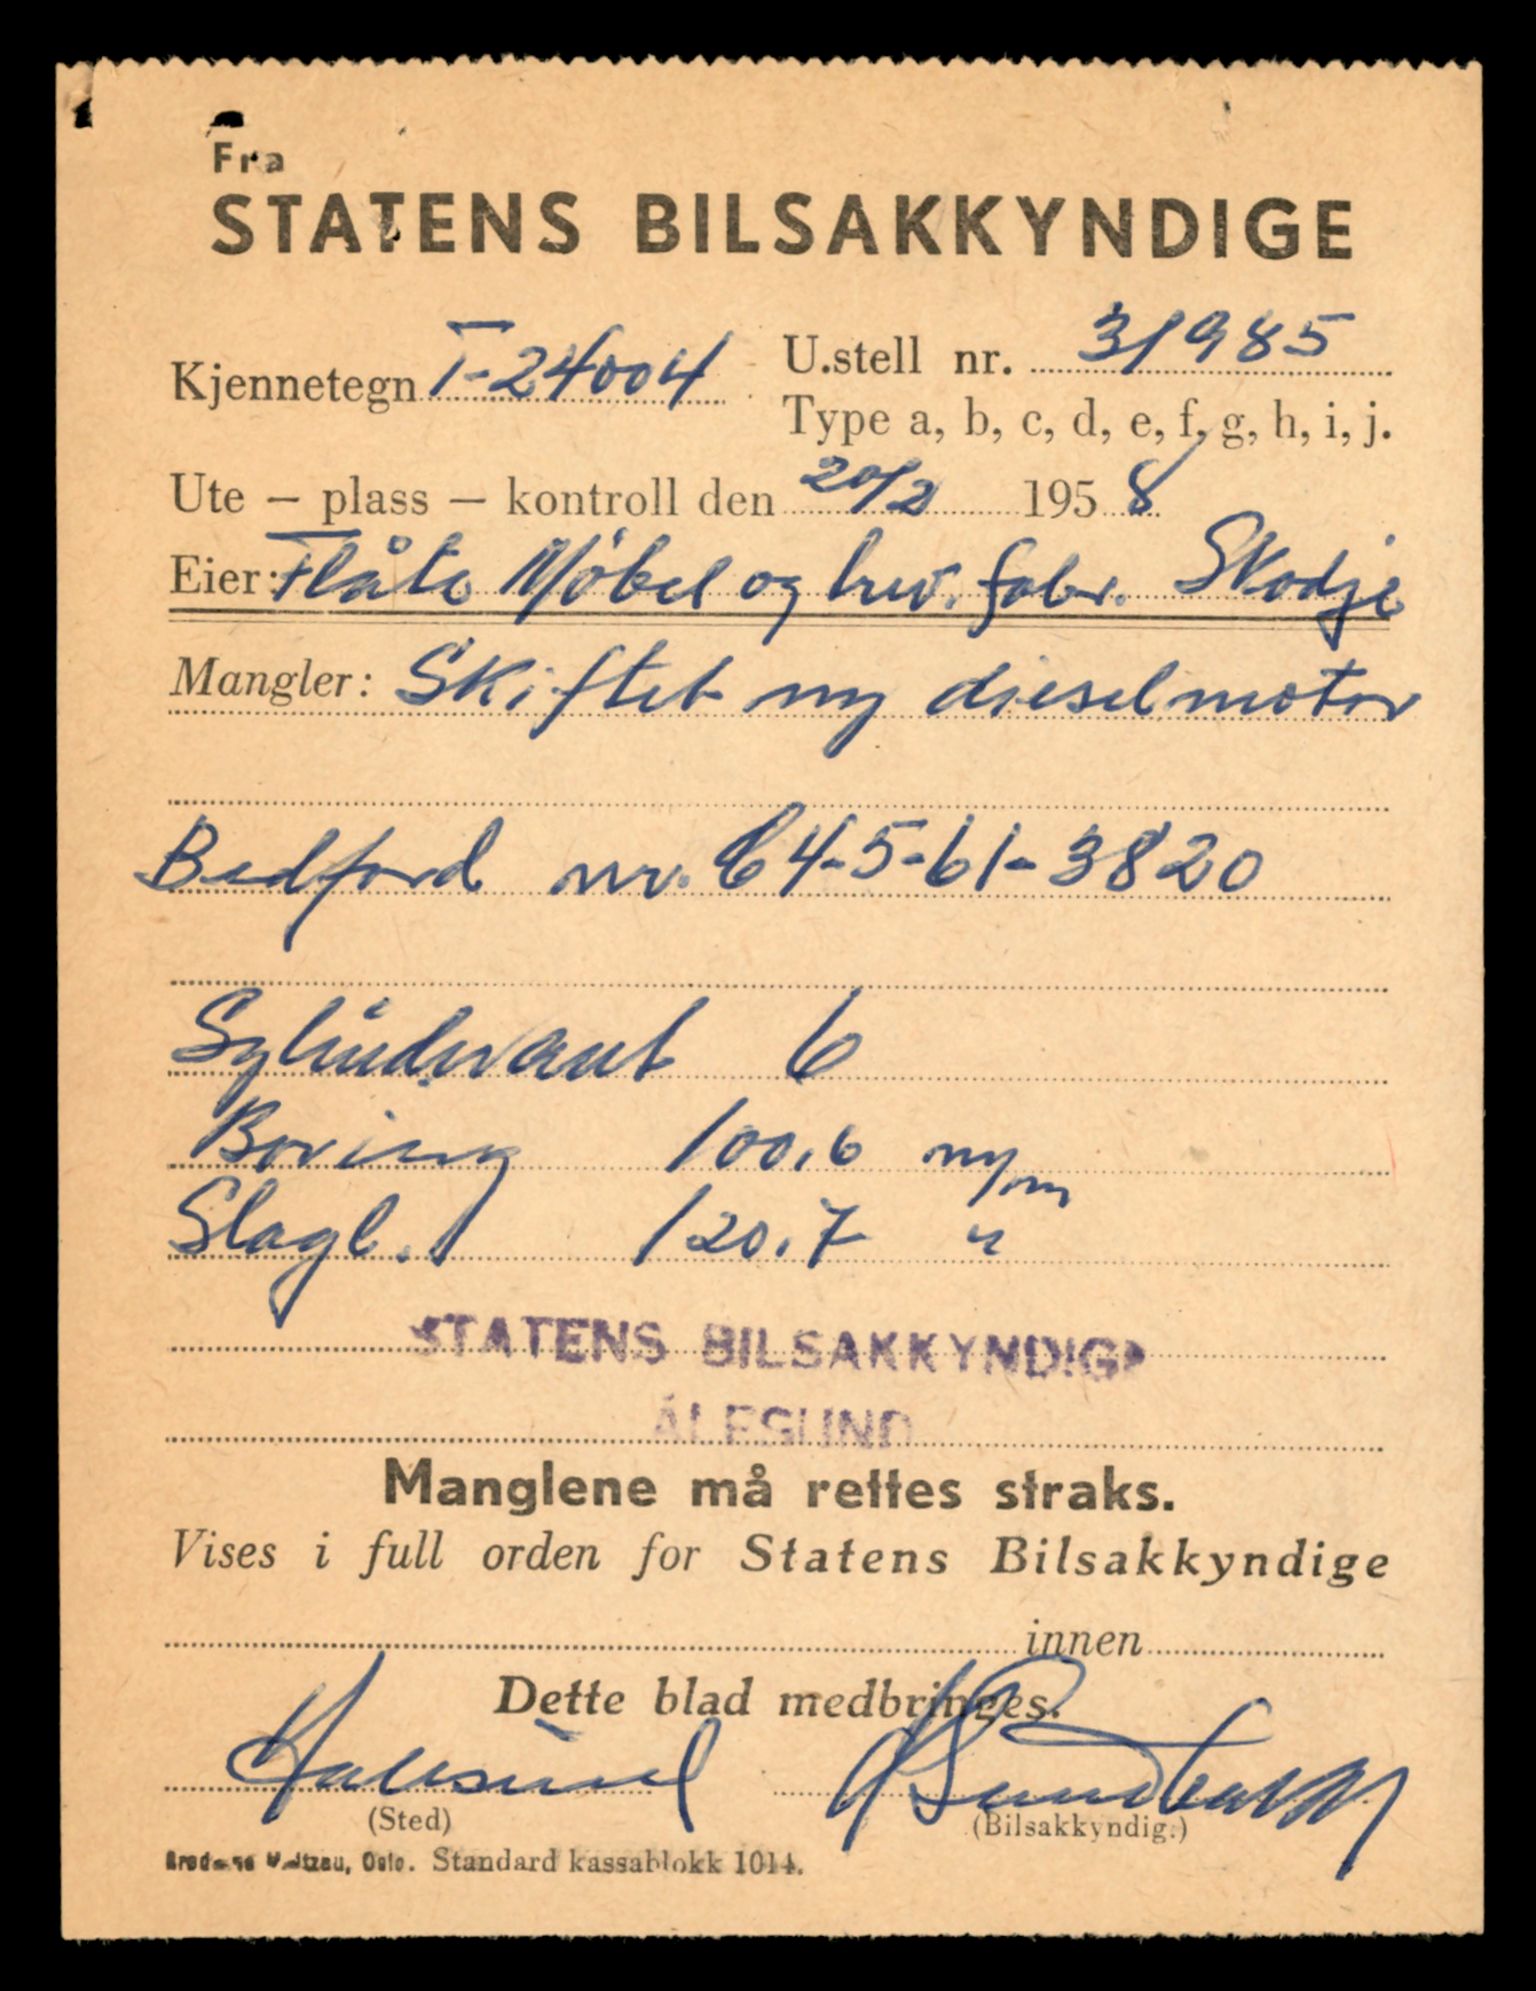 Fra
STATENS BILSAKKYNDIGE
Kjennetegn T-24004
U.stell nr. 31985
Type a, b, c, d, e, f, g, h, i, j.
Ute – plass – kontroll den 20/2 1958
Eier: Flåte Møbel og trev. fabr. Skodje
Mangler: Skiftet ny dieselmotor
Bedford nr. 64-5-61-3820
Sylinderant 6
Boring 100,6 m/m
Slagl. 120,7 "
STATENS BILSAKKYNDIGE
ÅLESUND
Manglene må rettes straks.
Vises i full orden for Statens Bilsakkyndige
innen
Dette blad medbringes.
Aalesund
(Sted) (Bilsakkyndig.)
Oslo. Standard kassablokk 1014.